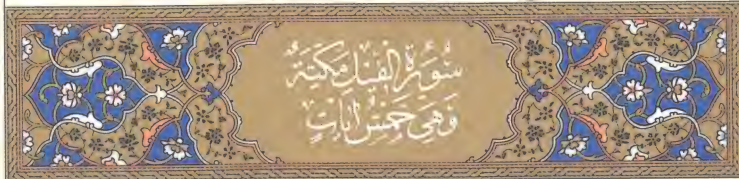 سُورَةُ الْفِيلِ مَكِّيَّةٌ
وَهِيَ خَمْسُ اٰيَاتٍ